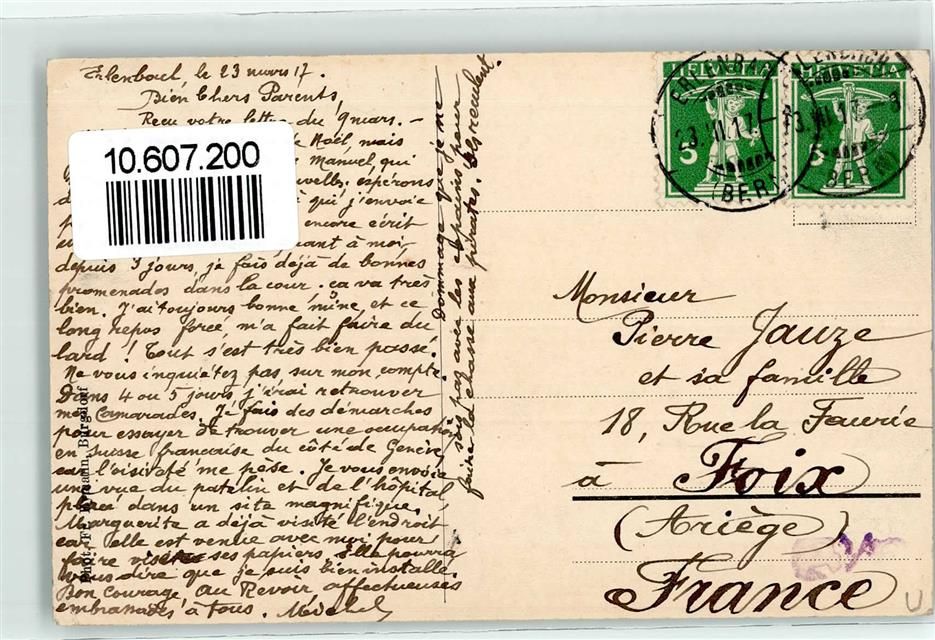 Erlenbach, le 23 mars 17.
Bien Chers Parents,
Reçu votre lettre du 9 mars. -
Noël, mais
Manuel, qui
espérons
qui j'envoie
encore écrit
quant à moi,
depuis 3 jours, je fais déjà de bonnes
promenades dans la cour. ça va très
bien. J'ai toujours bonne mine, et ce
long repos forcé, m'a fait faire du
lard ! Tout s'est très bien passé.
Ne vous inquiétez pas sur mon compte.
Dans 4 ou 5 jours j'irai retrouver
mes camarades. Je fais des démarches
pour essayer de trouver une occupation
en Suisse française du côté de Genève
car l'oisiveté me pèse. Je vous envoie
une vue du patelin et de l'hôpital
placé dans un site magnifique.
Marguerite a déjà visité l'endroit
car elle est venue avec moi pour
faire viser ses papiers. Elle pourra
vous dire que je suis bien installé.
Bon courage au Revoir affectueuses
embrassades à tous.
Dommage que je ne
sois pas avec les copains pour
faire la chasse aux pirates. Ils reculent.
10.607.200
HELVETIA
HELVETIA
5
5
ERLENBACH
(BERN)
Monsieur
Pierre Jauze
et sa famille
18, Rue la Faurie
à Foix
(Ariège)
France
Burgdorf
U